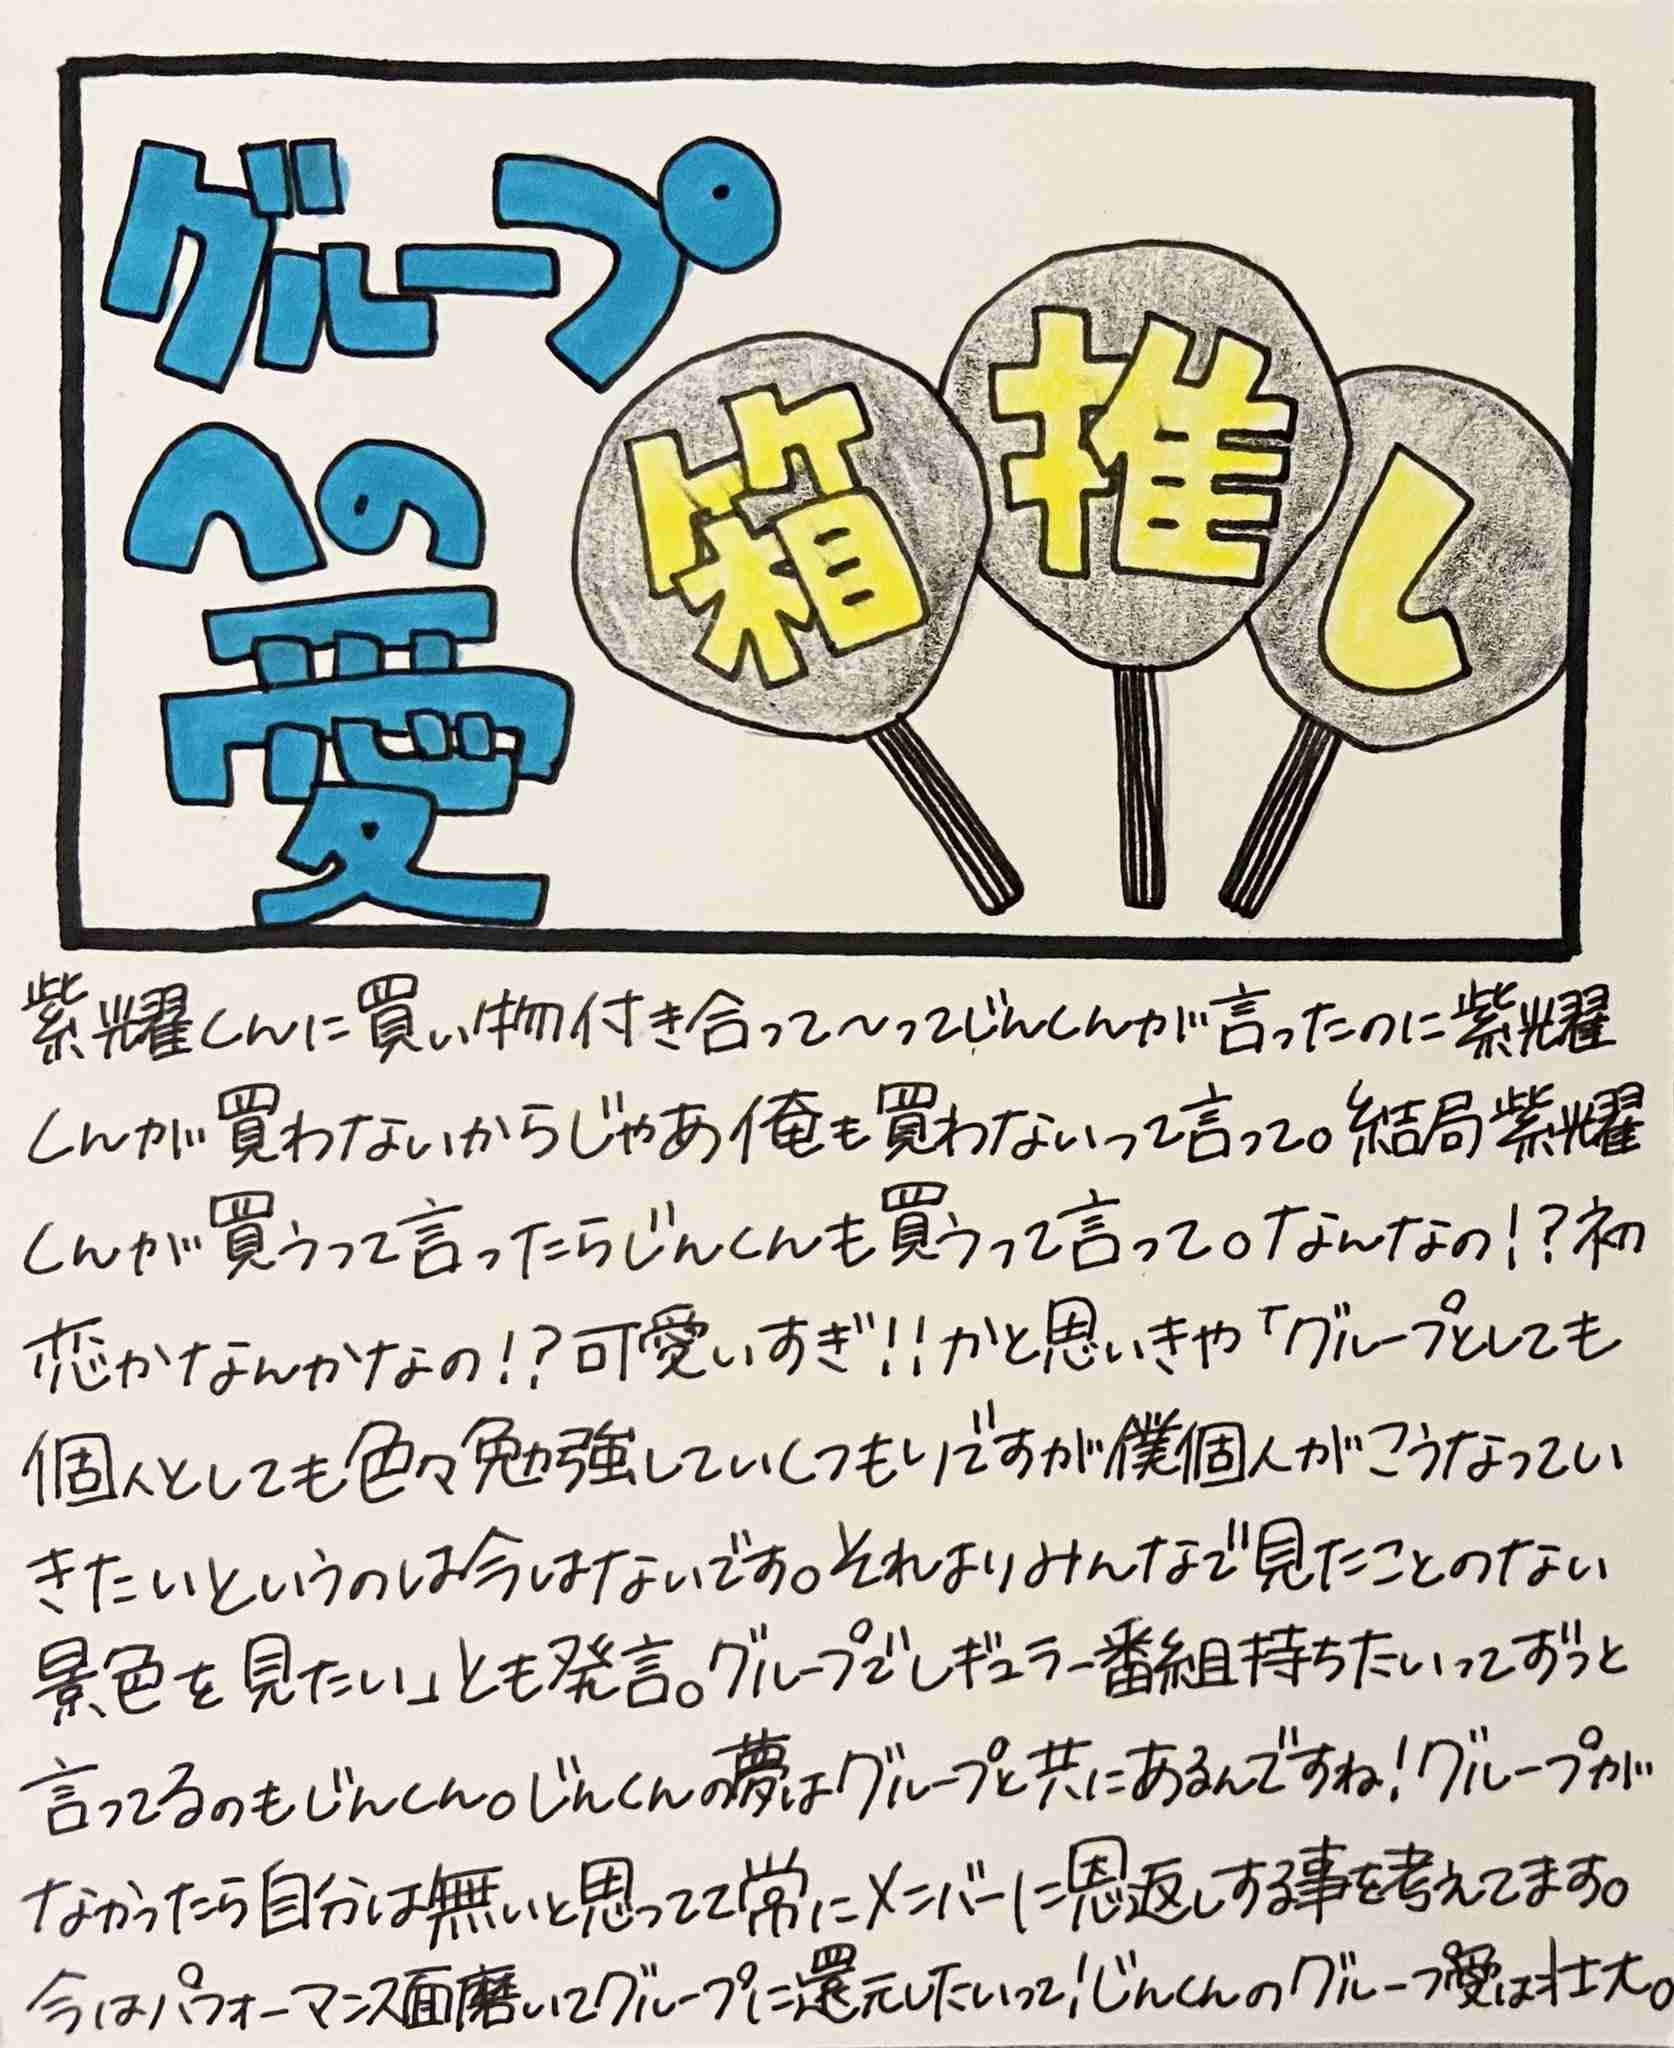 グループ
への
愛
箱推し
紫耀くんに買い物付き合って〜ってじんくんが言ったのに紫耀
くんが買わないからじゃあ俺も買わないって言って。結局紫耀
くんが買うって言ったらじんくんも買うって言って。なんなの!?初
恋かなんかなの!?可愛いすぎ!!かと思いきや「グループとしても
個人としても色々勉強していくつもりですが僕個人がこうなってい
きたいというのは今はないです。それよりみんなで見たことのない
景色を見たい」とも発言。グループでレギュラー番組持ちたいってずっと
言ってるのもじんくん。じんくんの夢はグループと共にあるんですね!グループが
なかったら自分は無いと思ってて常にメンバーに恩返しする事を考えてます。
今はパフォーマンス面磨いてグループに還元したいって!じんくんのグループ愛は壮大。